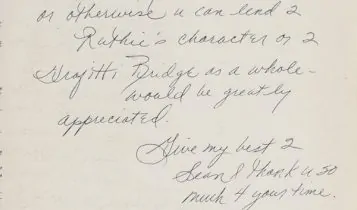 or otherwise u can lend 2
Ruthie's character or 2
Grafitti Bridge as a whole –
would be greatly
appreciated.
Give my best 2
Sean & thank u so
much 4 your time.